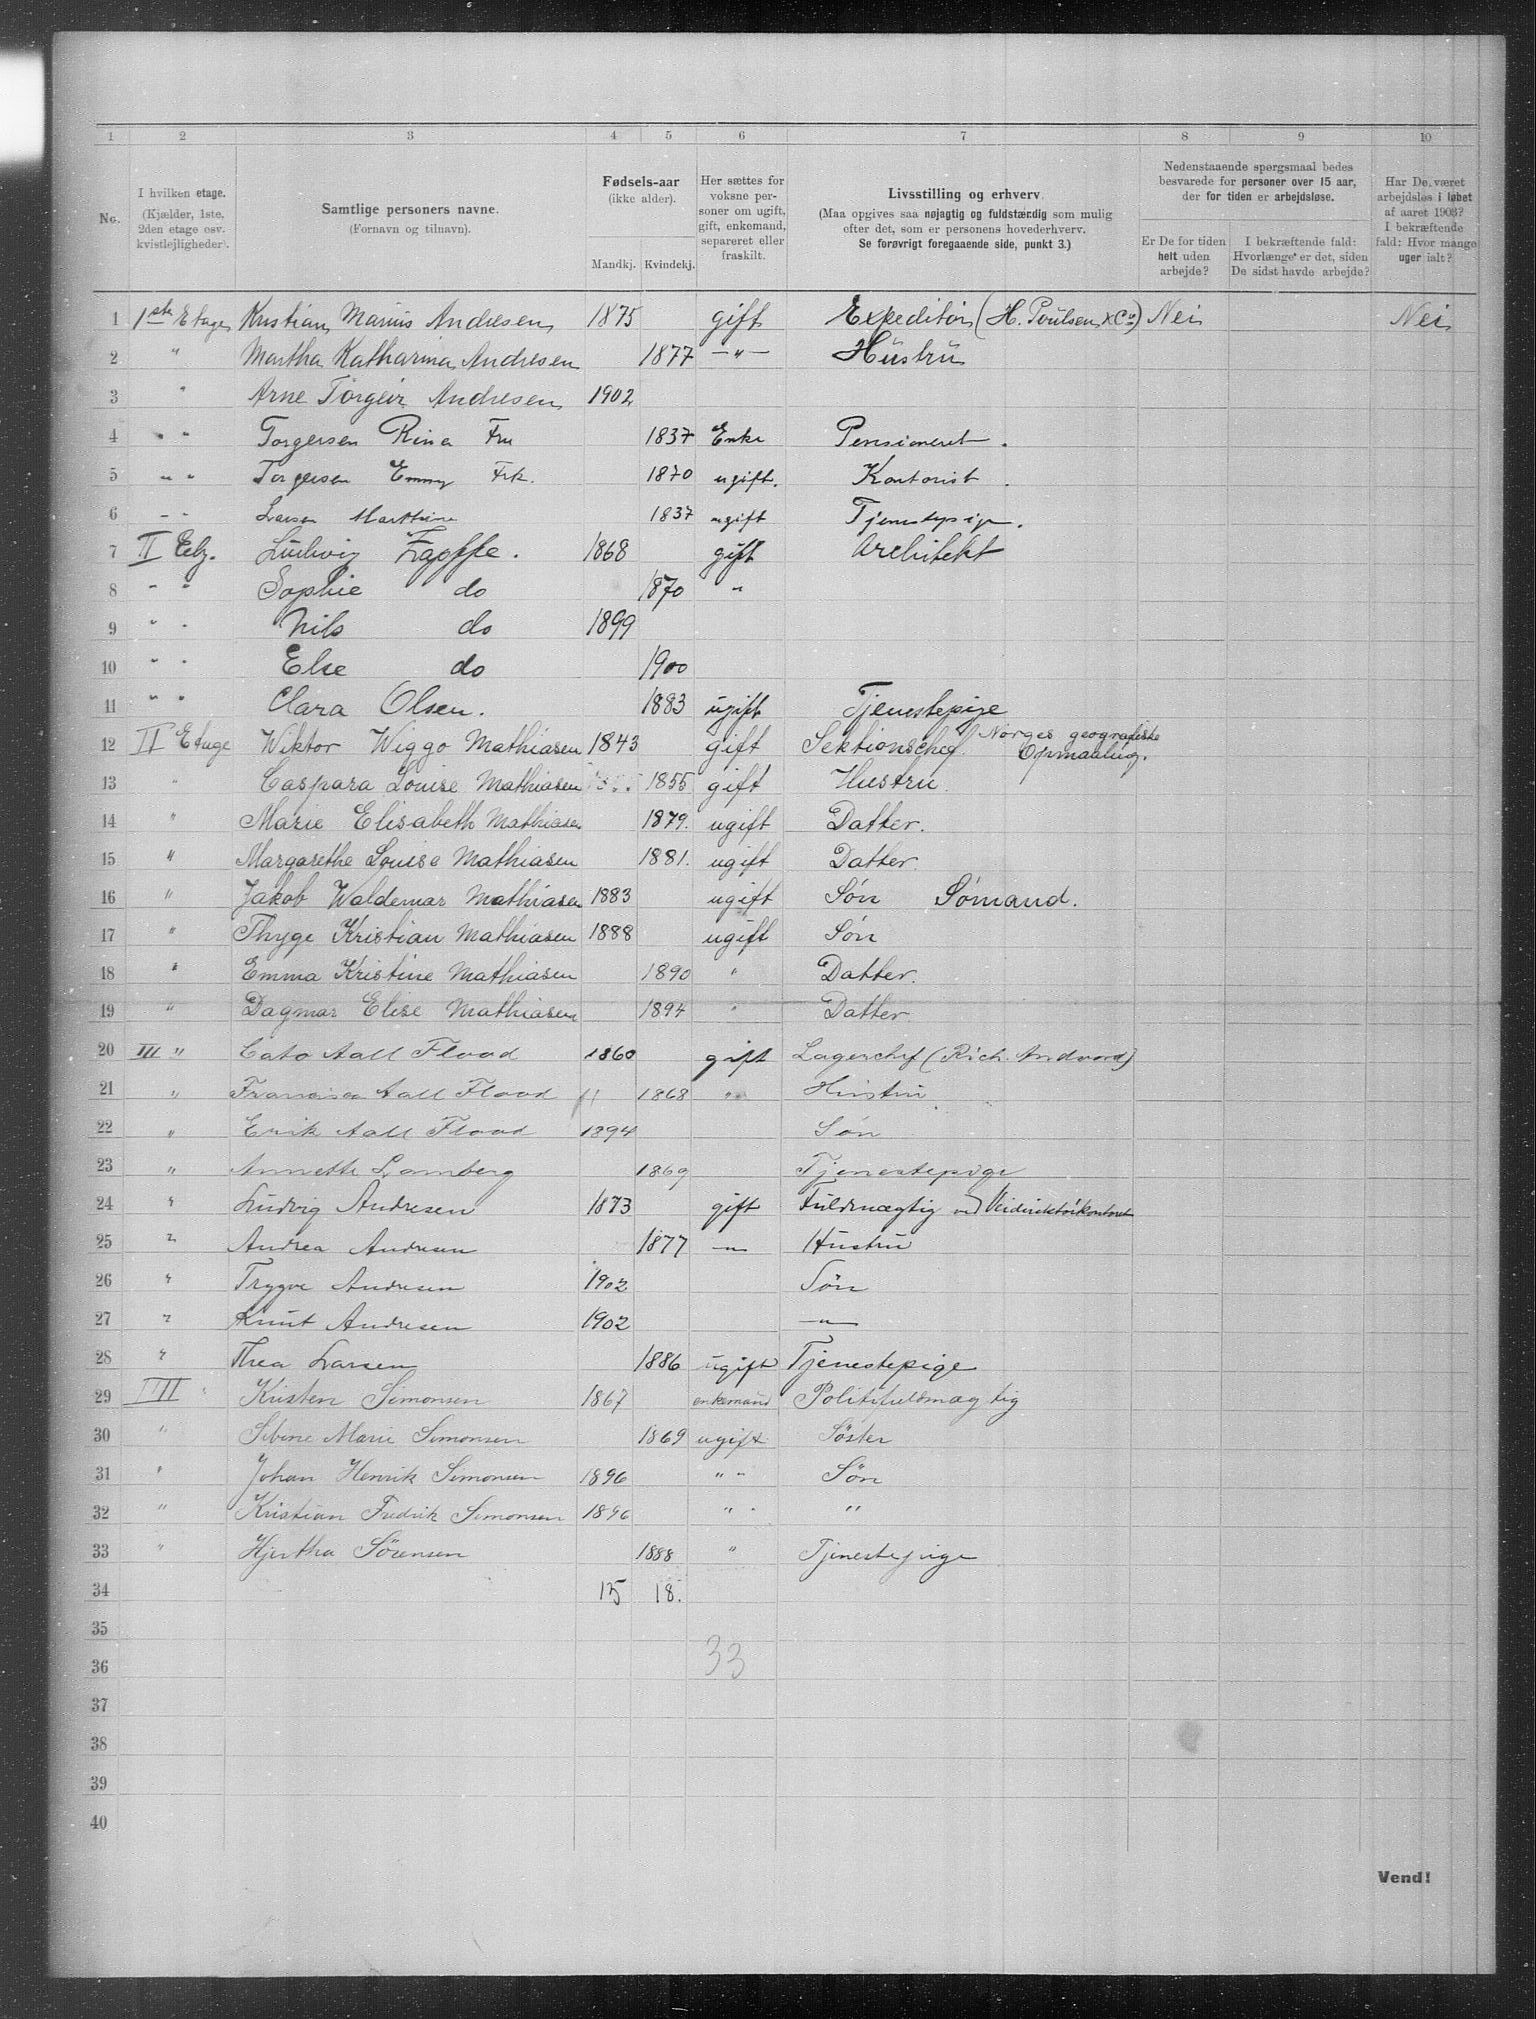 1 2 3 4 5 6 7 8 9 10
No.
I hvilken etage. (Kjælder, 1ste, 2den etage osv. kvistlejligheder).
Samtlige personers navne. (Fornavn og tilnavn).
Fødsels-aar (ikke alder). Mandkj. Kvindekj.
Her sættes for voksne personer om ugift, gift, enkemand, separeret eller fraskilt.
Livsstilling og erhverv. (Maa opgives saa nøjagtig og fuldstærdig som mulig efter det, som er personens hovederhverv. Se forøvrigt foregaaende side, punkt 3.)
Nedenstaaende spørgsmaal bedes besvarede for personer over 15 aar, der for tiden er arbejdsløse.
Er De for tiden helt uden arbejde?
I bekræftende fald: Hvorlænge er det, siden De sidst havde arbejde?
Har De været arbejdsløs i løbet af aaret 1903? I bekræftende fald: Hvor mange uger ialt?
1 1ste Etage Kristian Marius Andresen 1875 gift Expeditör (H. Poulsen & Co) Nei Nei
2 " Martha Katharina Andresen 1877 —"— Hustru
3 " Arne Torgeir Andresen 1902
4 " " Torgersen Rina Fru 1837 Enke Pensioneret.
5 " " Torgersen Emmy Frk. 1870 ugift. Kontorist
6 " " Larsen Marthine 1837 ugift Tjenestepige.
7 II Etg. Ludvig 1868 gift Architekt
8 " " Sophie do 1870 "
9 " " Nils do 1899
10 " " Else do 1900
11 " " Clara Olsen. 1883 ugift Tjenestepige
12 II Etage Wiktor Wiggo Mathiasen 1843 gift Sektionschef Norges geografiske Opmaaling.
13 " Caspara Louise Mathiasen 1855 gift Hustru
14 " Marie Elisabeth Mathiasen 1879. ugift Datter.
15 " Margarethe Louise Mathiasen 1881. ugift Datter.
16 " Jakob Waldemar Mathiasen 1883 ugift Søn Sømand.
17 " Thyge Kristian Mathiasen 1888 ugift Søn
18 " Emma Kristine Mathiasen 1890 " Datter.
19 " Dagmar Elise Mathiasen 1894 " Datter.
20 III " Cato Aall Flood 1860 gift Lagerchef (Rich. Andvord)
21 " Francisca Aall Flood 1868 " Hustru
22 " Erik Aall Flood 1894 Søn
23 " Annette Lamberg 1869 Tjenestepige
24 " Ludvig Andresen 1873 gift Fuldmægtig ved Veidirektörkontoret
25 " Andrea Andresen 1877 —"— Hustru
26 " Trygve Andresen 1902 Sön
27 " Knut Andresen 1902 —"—
28 " Thea Larsen 1886 ugift Tjenestepige
29 IIII " Kristen Simonsen 1867 enkemand Politifuldmægtig
30 " Sibine Marie Simonsen 1869 ugift Söster
31 " Johan Henrik Simonsen 1896 " " Sön
32 " Kristian Fredrik Simonsen 1896 " " "
33 " Hjertha Sörensen 1888 " Tjenestepige
34 15 18.
35
36 33
37
38
39
40
Vend!